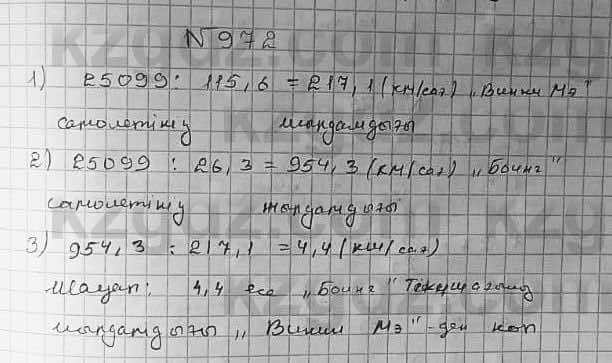 № 972
1) 25099 : 115,6 = 217,1 (км/сағ) „Винни Мэ"
самолетінің жылдамдығы
2) 25099 : 26,3 = 954,3 (км/сағ) „Боинг"
самолетінің жылдамдығы
3) 954,3 : 217,1 = 4,4 (км/сағ)
Жауап: 4,4 есе „Боинг"
жылдамдығы „Винни Мэ"-ден көп